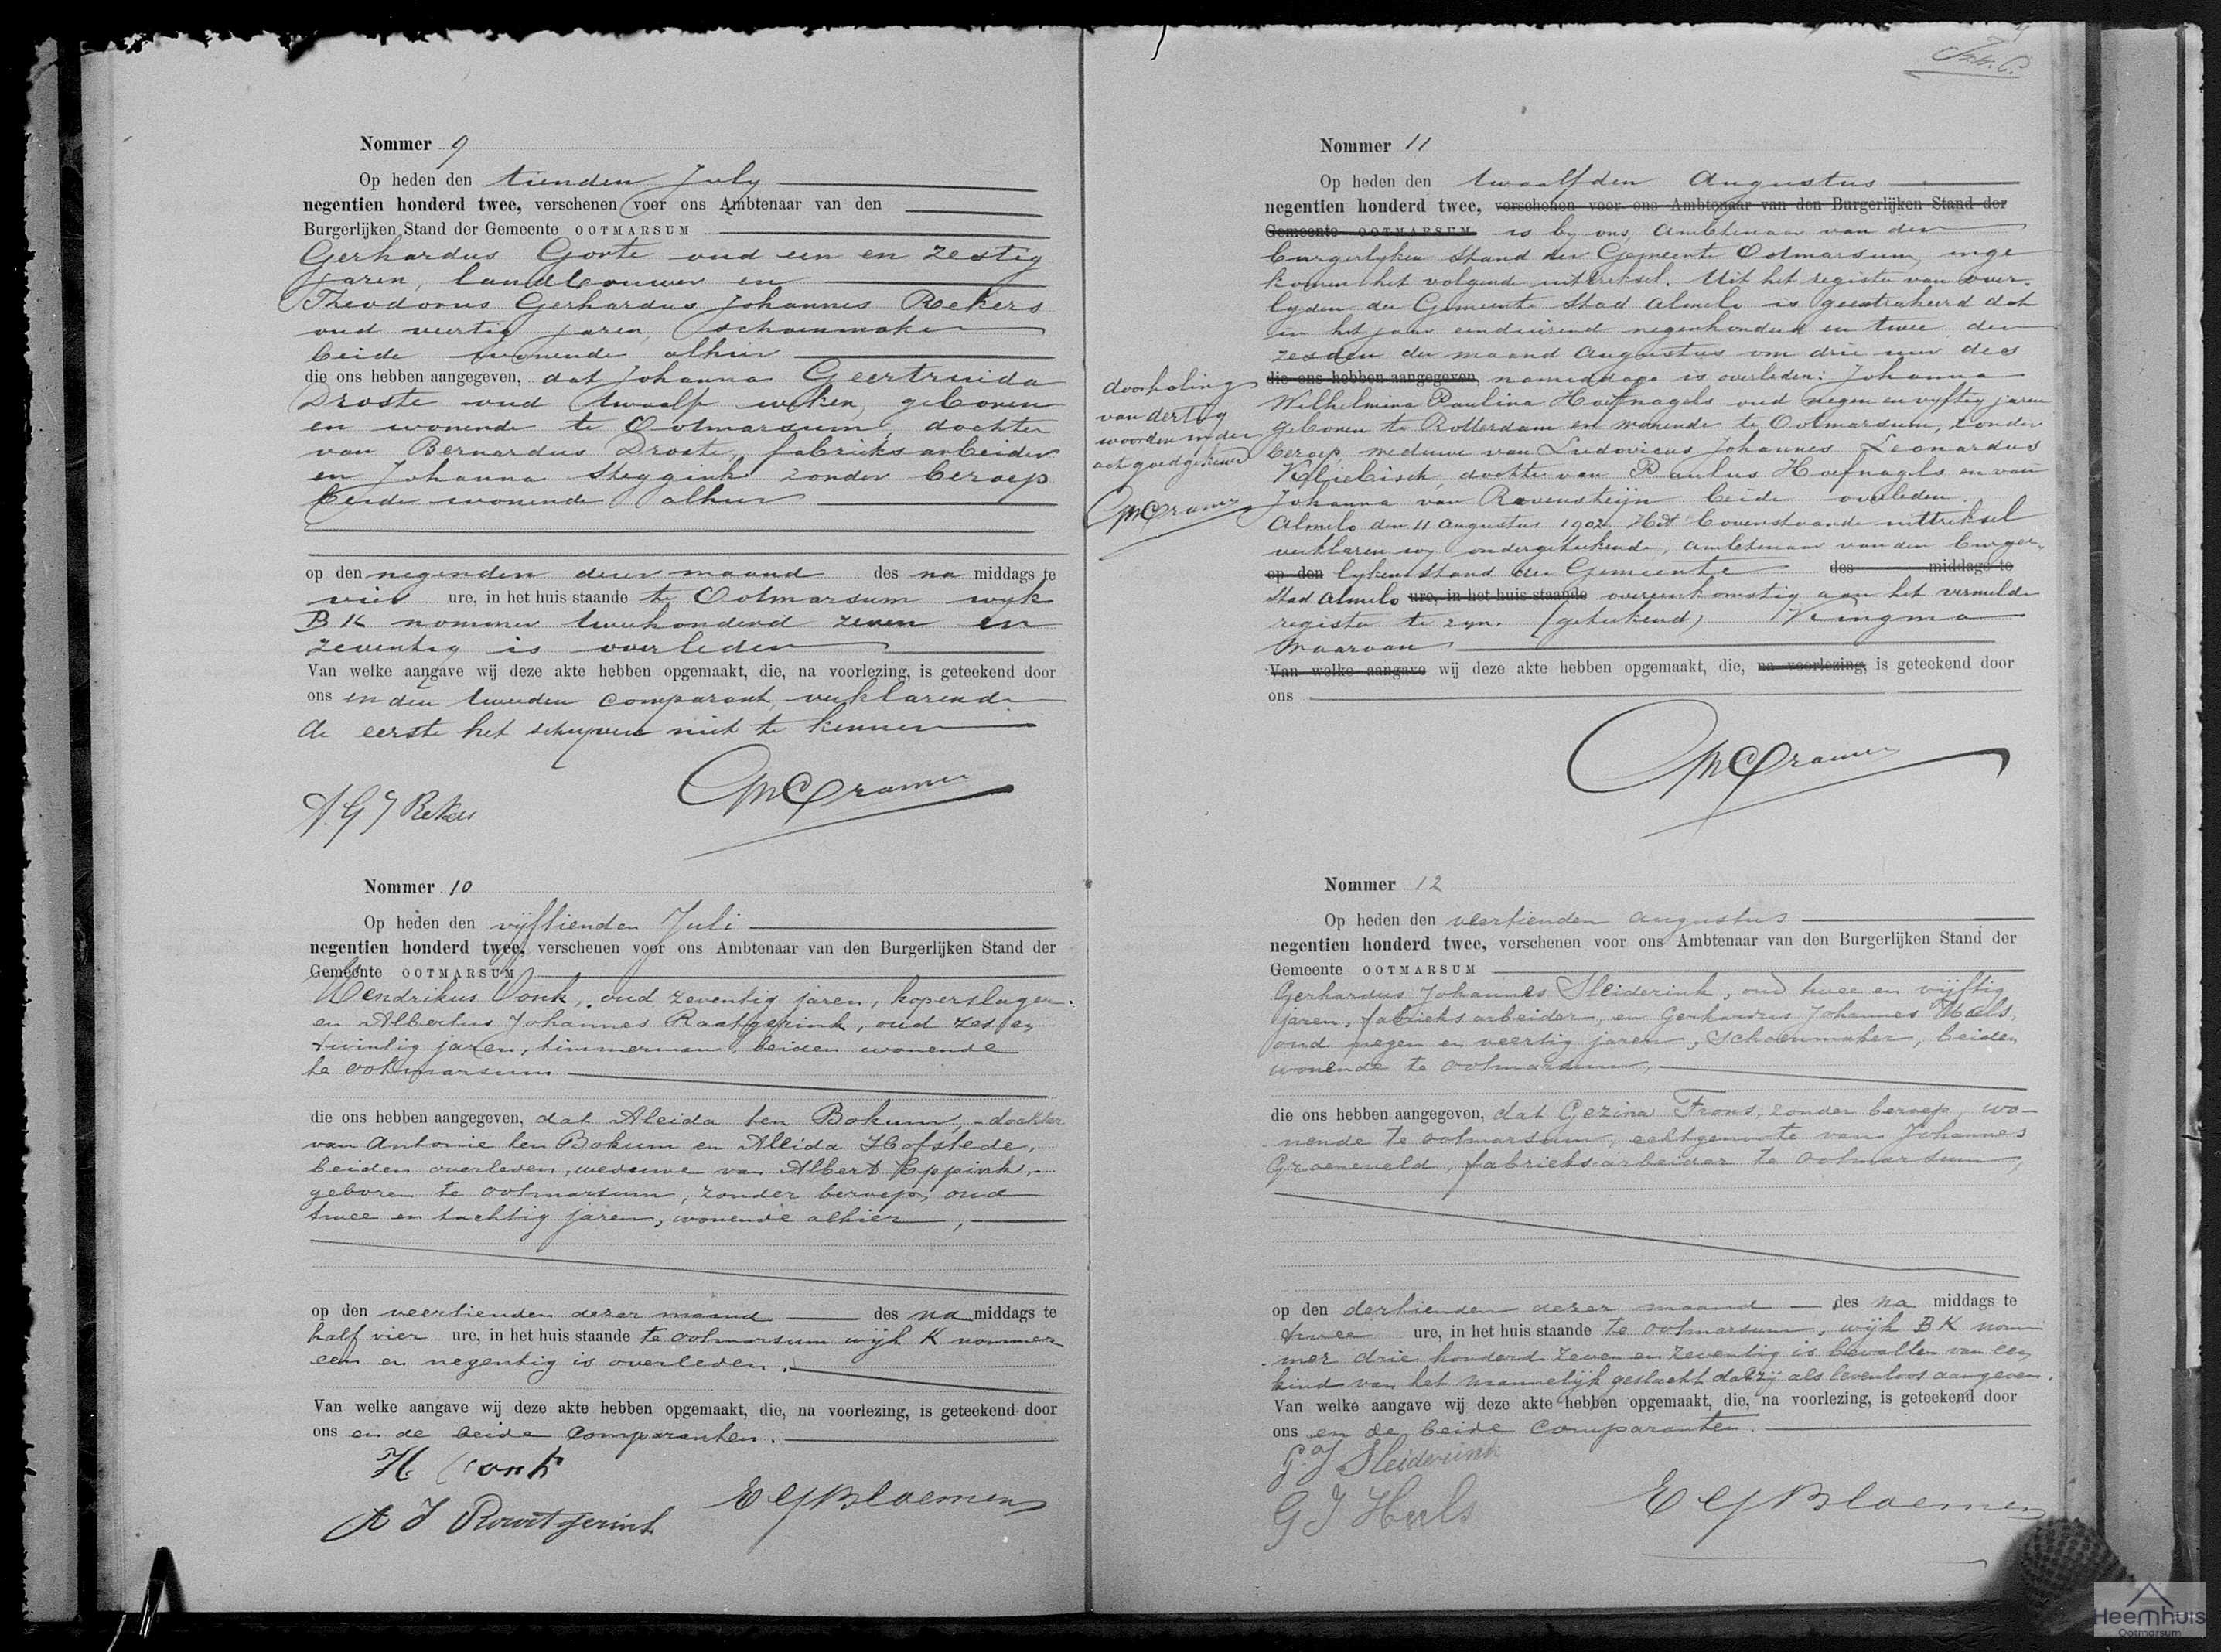 Nommer 9
Op heden den tienden July
negentien honderd twee, verschenen voor ons Ambtenaar van den
Burgerlijken Stand der Gemeente OOTMARSUM
Gerhardus Gorte oud een en zestig
jaren, landbouwer en
Theodorus Gerhardus Johannes Rekers
oud veertig jaren, schoenmaker
beide wonende alhier
die ons hebben aangegeven, dat Johanna Geertruida
Droste oud twaalf weken, geboren
en wonende te Ootmarsum, dochter
van Bernardus Droste, fabrieksarbeider
en Johanna Steggink zonder beroep
beide wonende alhier
op den negenden dezer maand des na middags te
vier ure, in het huis staande te Ootmarsum wijk
BK nommer tweehonderd zeven en
zeventig is overleden
Van welke aangave wij deze akte hebben opgemaakt, die, na voorlezing, is geteekend door
ons en den tweeden comparant, verklarende
de eerste het schrijven niet te kennen
GJ Rekers
Cramer
Nommer 10
Op heden den vijftienden Juli
negentien honderd twee, verschenen voor ons Ambtenaar van den Burgerlijken Stand der
Gemeente OOTMARSUM
Hendrikus Vonk, oud zeventig jaren, koperslager
en Albertus Johannes Raatgerink, oud zes en
twintig jaren, timmerman, beiden wonende
te Ootmarsum
die ons hebben aangegeven, dat Aleida ten Bokum, dochter
van Antonie ten Bokum en Aleida Hofstede,
beiden overleden, weduwe van Albert Eppink,
geboren te Ootmarsum, zonder beroep, oud
twee en tachtig jaren, wonende alhier,
op den veertienden dezer maand des na middags te
half vier ure, in het huis staande te Ootmarsum wijk K nommer
een en negentig is overleden.
Van welke aangave wij deze akte hebben opgemaakt, die, na voorlezing, is geteekend door
ons en de beide comparanten.
H Vonk
A J Raatgerink
E G Bloemen
Nommer 11
Op heden den twaalfden Augustus
negentien honderd twee, verschenen voor ons Ambtenaar van den Burgerlijken Stand der
Gemeente OOTMARSUM is by ons, Ambtenaar van den
burgerlyken stand der Gemeente Ootmarsum, inge
komen het volgende uittreksel. Uit het register van over-
lyden der Gemeente Stad Almelo is geextraheerd dat
in het jaar eenduizend negenhonderd en twee den
zesden der maand Augustus om drie uur des
die ons hebben aangegeven, namiddags is overleden: Johanna
Wilhelmina Paulina Hoefnagels oud negen en vyftig jaren
geboren te Rotterdam en wonende te Ootmarsum, zonder
beroep weduwe van Ludovicus Johannes Leonardus
Kliebisch, dochter van Paulus Hoefnagels en van
Johanna van Ravensteijn beide overleden.
Almelo den 11 Augustus 1902. Het bovenstaande uittreksel
verklaren wy ondergeteekende, ambtenaar van den burger-
op den lyken stand der Gemeente des middags te
Stad Almelo ure, in het huis staande overeenkomstig aan het vermelde
register te zyn. (geteekend) Kingma
Waarvan
Van welke aangave wij deze akte hebben opgemaakt, die, na voorlezing, is geteekend door
ons
Cramer
doorhaling
van dertig
woorden in den
act goedgekeurd
Cramer
Nommer 12
Op heden den veertienden Augustus
negentien honderd twee, verschenen voor ons Ambtenaar van den Burgerlijken Stand der
Gemeente OOTMARSUM
Gerhardus Johannes Sleiderink, oud twee en vijftig
jaren, fabrieksarbeider, en Gerhardus Johannes Huls,
oud negen en veertig jaren, schoenmaker, beiden
wonende te Ootmarsum,
die ons hebben aangegeven, dat Gezina Frons, zonder beroep, wo-
nende te Ootmarsum, echtgenoote van Johannes
Groeneveld, fabrieksarbeider te Ootmarsum,
op den dertienden dezer maand des na middags te
twee ure, in het huis staande te Ootmarsum, wijk BK nom
mer drie honderd zeven en zeventig is bevallen van een
kind van het mannelijk geslacht dat zij als levenloos aangeven.
Van welke aangave wij deze akte hebben opgemaakt, die, na voorlezing, is geteekend door
ons en de beide comparanten.
G.J Sleiderink
G J Huls
E G Bloemen
Heemhuis
Ootmarsum